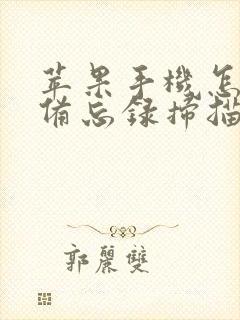 苹果手機怎
備忘録掃描
郭麗雙